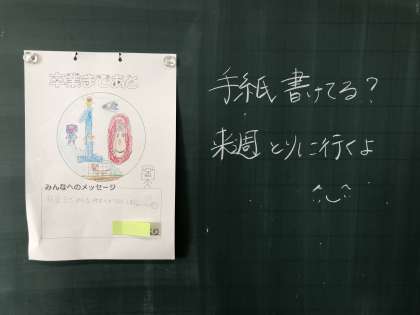 卒業まであと
10
みんなへのメッセージ
より
手紙書けてる？
来週とりに行くよ